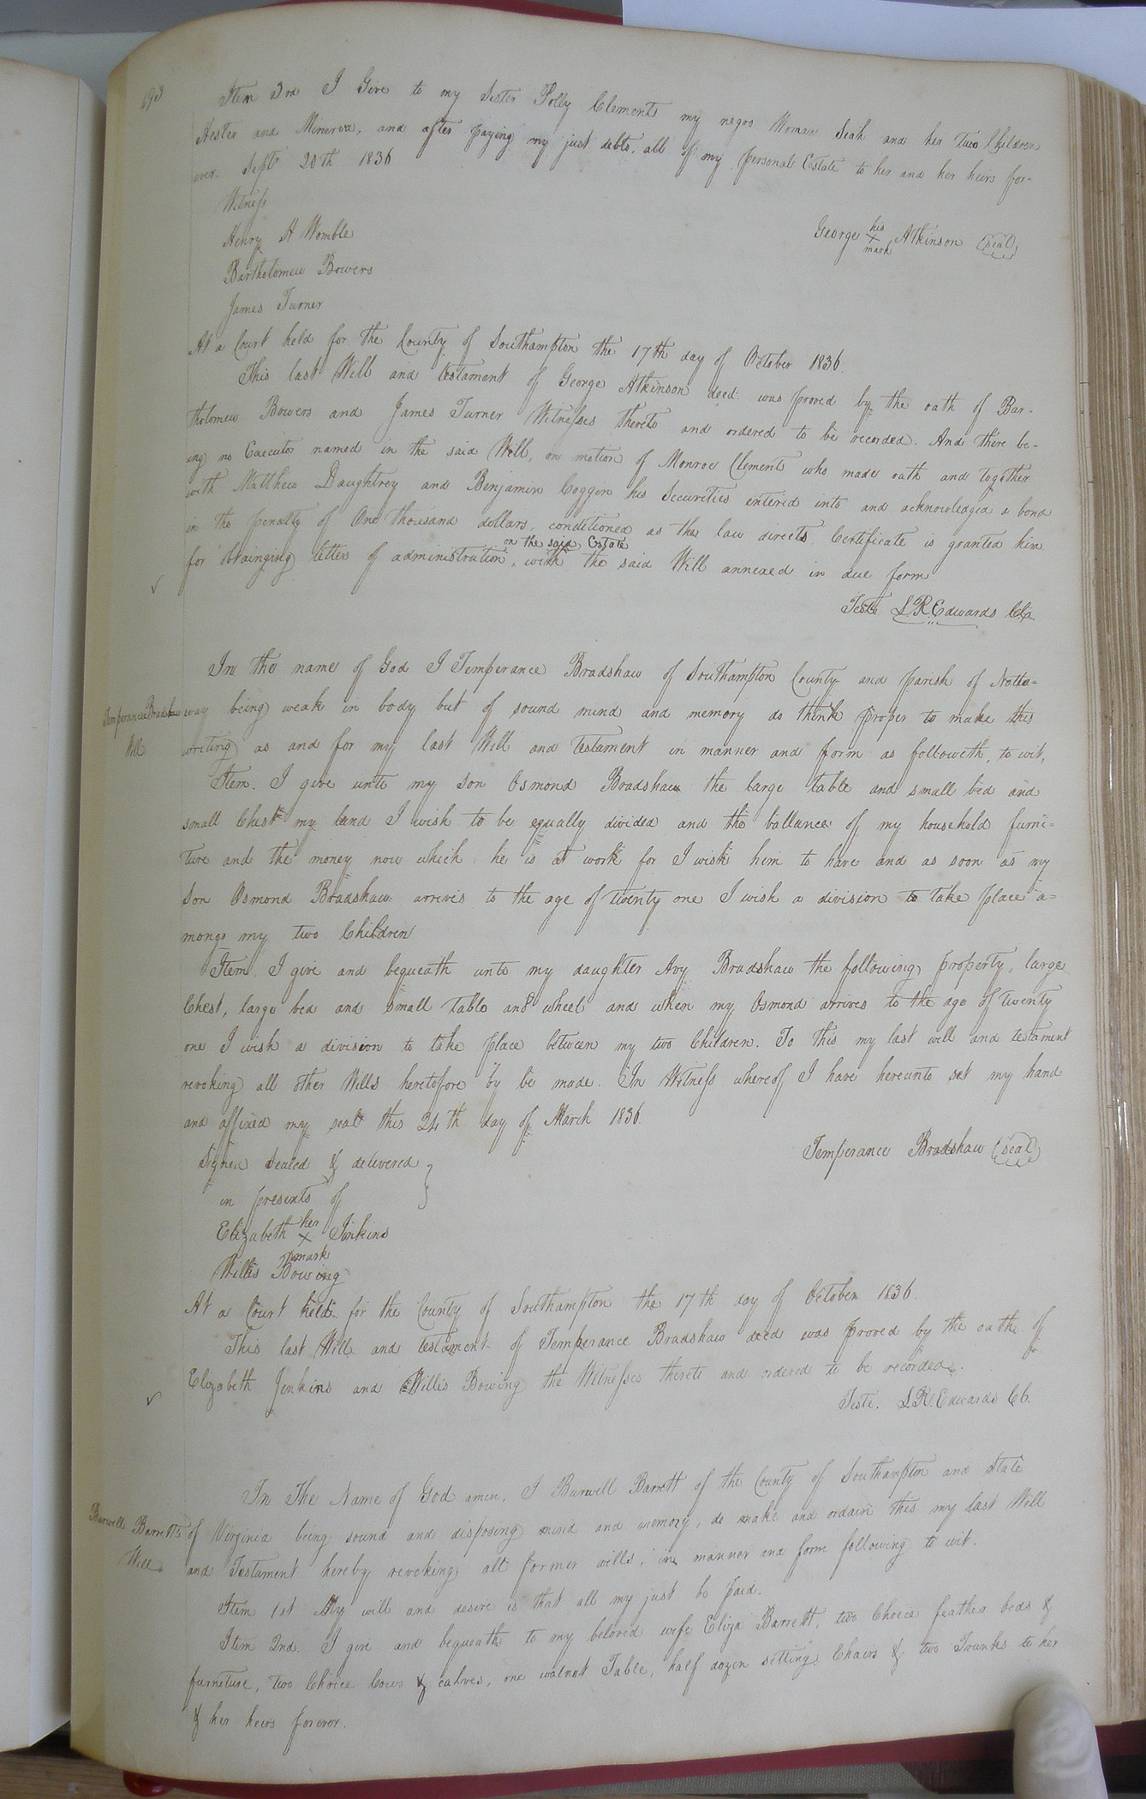 693
Item 3rd I Give to my Sister Polly Clements my negro Woman Leah and her two Children
Hester and Minerva, and after paying my just debts, all of my personal Estate to her and her heirs for-
ever. Sept 20th 1836
Witness
Henry A Womble
Bartholomew Bowers
James Turner
George his X mark Atkinson (seal)
At a Court held for the County of Southampton the 17th day of October 1836.
This last Will and testament of George Atkinson decd was proved by the oath of Bar-
tholomew Bowers and James Turner Witnesses thereto and ordered to be recorded. And there be-
ing no Executor named in the said Will, on motion of Monroe Clements who made oath and together
with Matthew Daughtrey and Benjamin Coggin his Securities entered into and acknowledged a bond
in the penalty of One thousand dollars, conditioned as the law directs Certificate is granted him
for obtainging letter of administration on the said Estate, with the said Will annexed in due form
Teste L.R. Edwards Clk
In the name of God I Temperance Bradshaw of Southampton County and parish of Notta-
Temperance Bradshaw
Will
way being weak in body but of sound mind and memory do think proper to make this
writing as and for my last Will and testament in manner and form as followeth, to wit,
Item. I give unto my son Osmond Bradshaw the large table and small bed and
small Chest my land I wish to be equally divided and the ballance of my household furni-
ture and the money now which he is at work for I wish him to have and as soon as my
son Osmond Bradshaw arrives to the age of twenty one I wish a division to take place a-
mong my two Children
Item. I give and bequeath unto my daughter Avy Bradshaw the following property, large
Chest, large bed and small table and wheel and when my Osmond arrives to the age of twenty
one I wish a division to take place between my two Children. To this my last will and testament
revoking all other Wills heretofore by be made. In Witness whereof I have hereunto set my hand
and affixed my seal this 24th day of March 1836.
Temperance Bradshaw (seal)
Signed Sealed & delivered
in presents of
Elizabeth her X mark Jinkins
Willis Bowing
At a Court held for the County of Southampton the 17th day of October 1836.
This last Will and testament of Temperance Bradshaw decd was proved by the oath of
Elizabeth Jenkins and Willis Bowing the Witnesses thereto and ordered to be recorded.
Teste. L.R. Edwards CC.
In The Name of God amen, I Burwell Barrett of the County of Southampton and State
Burwell Barrett's
Will
of Virginia being sound and disposing mind and memory, do make and ordain this my last Will
and Testament hereby revoking all former wills, in manner and form following to wit.
Item 1st My will and desire is that all my just be paid.
Item 2nd. I give and bequeath to my beloved wife Eliza Barrett, two Choice feather beds &
furneture, two Choice Cows & calves, one walnut Table, half dozen sitting Chairs & two Trunks to her
& her heirs forever.